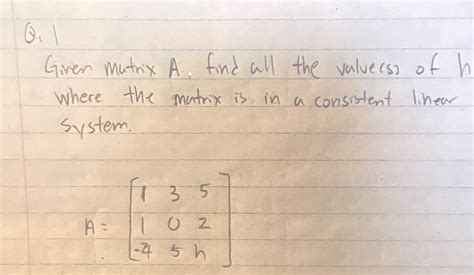 Q. 1
Given matrix A, find all the value(s) of h
where the matrix is in a consistent linear
system.
A = [1 3 5
1 0 2
-4 5 h]